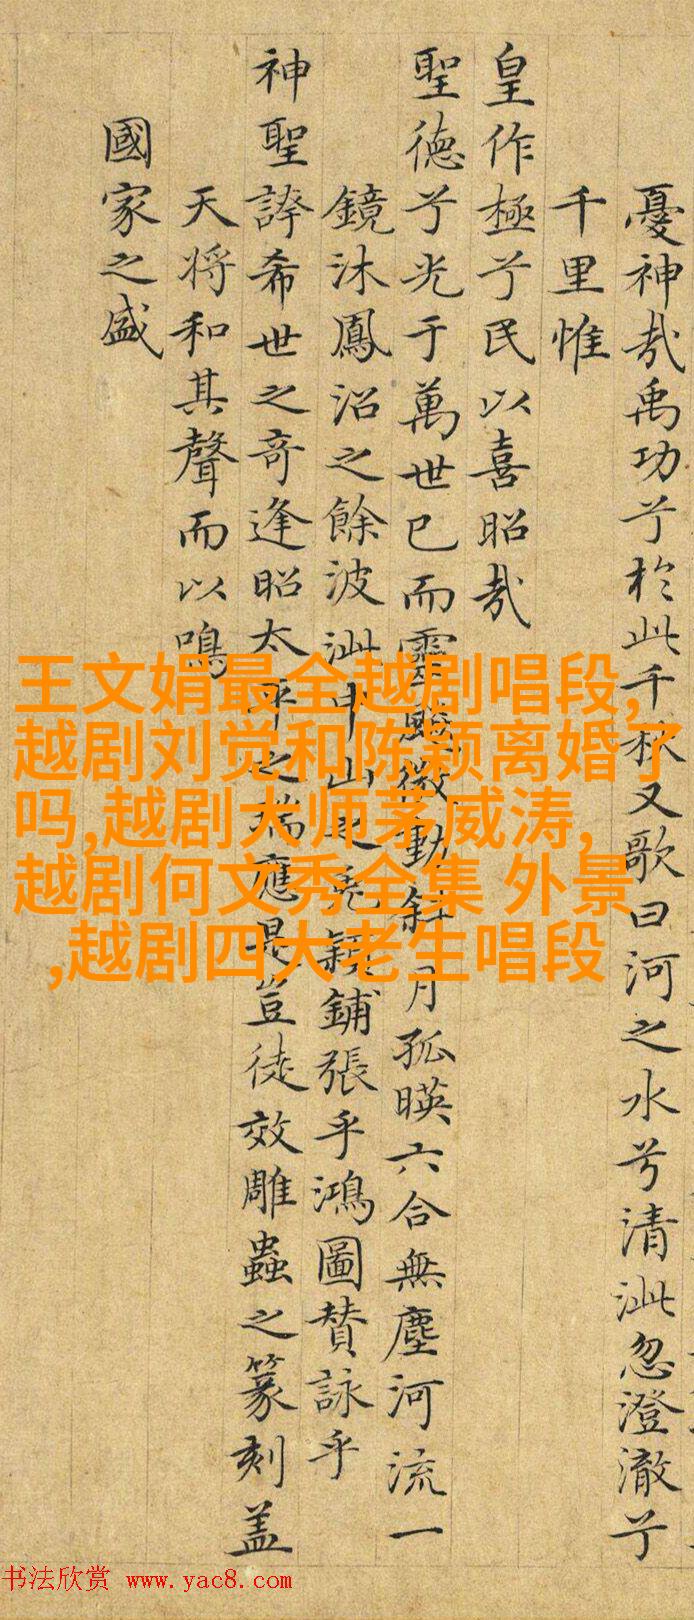 憂神哉禹功兮於此千秋又歌曰河之水兮清泚忽澄澈兮
千里惟
皇作極兮民以喜昭哉
聖德兮光于萬世已而靈飈微動斜月孤暎六合無塵河流一
鏡沐鳳沼之餘波泚中山之兔穎鋪張乎鴻圖賛詠乎
神聖誇希世之奇逢昭太平之瑞應是豈徒效雕蟲之篆刻盖
天将和其聲而以鳴
國家之盛
王文娟最全越剧唱段,
越剧刘觉和陈颖离婚了
吗,越剧大师茅威涛,
越剧何文秀全集 外景
,越剧四大老生唱段
书法欣赏 www.yac8.com